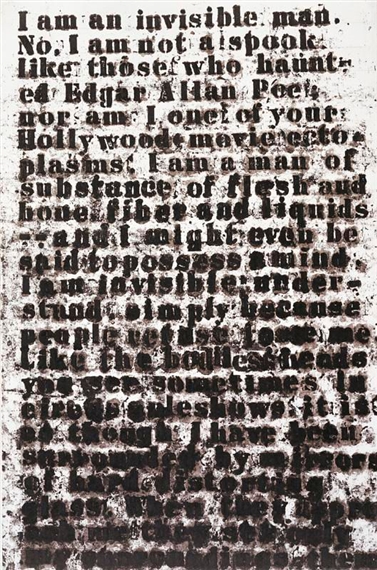 I am an invisible man.
No, I am not a spook
like those who haunt-
ed Edgar Allan Poe;
nor am I one of your
Hollywood-movie ecto-
plasms. I am a man of
substance, of flesh and
bone, fiber and liquids
--and I might even be
said to possess a mind.
I am invisible, under-
stand, simply because
people refuse to see me.
Like the bodiless heads
you see sometimes in
circus sideshows, it is
as though I have been
surrounded by mirrors
of hard, distorting
glass. When they